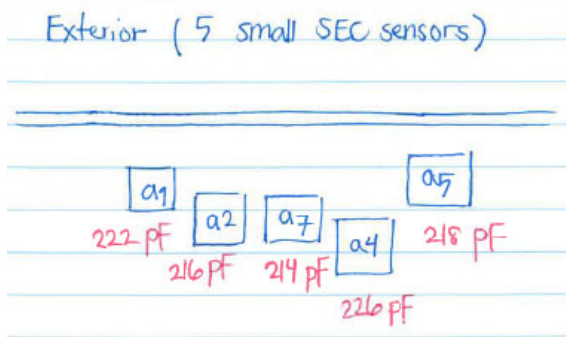 Exterior (5 small SEC sensors)
a1
222 pF
a2
216 pF
a7
214 pF
a4
226 pF
a5
218 pF